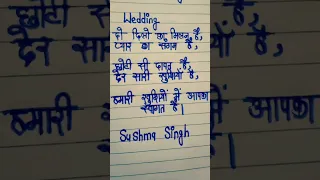 Wedding
दो दिलो का मिलन है,
प्यार का संगम है,
छोटी सी दावत है,
देन सारी खुशियाँ है,
हमारी खुशियों में आपका
स्वागत है।
Sushma Singh